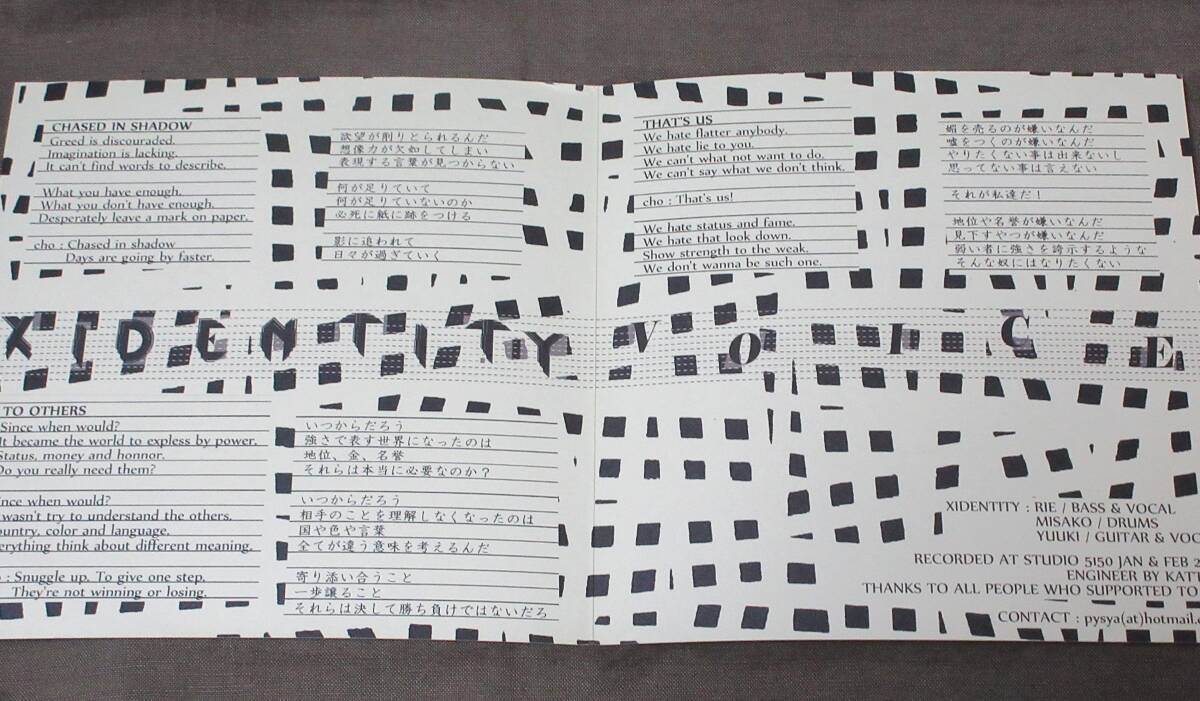 CHASED IN SHADOW
Greed is discouraded.
Imagination is lacking.
It can't find words to describe.
What you have enough.
What you don't have enough.
Desperately leave a mark on paper.
cho : Chased in shadow
Days are going by faster.
欲望が削りとられるんだ
想像力が欠如してしまい
表現する言葉が見つからない
何が足りていて
何が足りていないのか
必死に紙に跡をつける
影に追われて
日々が過ぎていく
THAT'S US
We hate flatter anybody.
We hate lie to you.
We can't what not want to do.
We can't say what we don't think.
cho : That's us!
We hate status and fame.
We hate that look down.
Show strength to the weak.
We don't wanna be such one.
媚を売るのが嫌いなんだ
嘘をつくのが嫌いなんだ
やりたくない事は出来ないし
思ってない事は言えない
それが私達だ！
地位や名誉が嫌いなんだ
見下すやつが嫌いなんだ
弱い者に強さを誇示するような
そんな奴にはなりたくない
XIDENTITY VOICE
TO OTHERS
Since when would?
It became the world to expless by power.
Status, money and honnor.
Do you really need them?
Since when would?
wasn't try to understand the others.
country, color and language.
everything think about different meaning.
: Snuggle up. To give one step.
They're not winning or losing.
いつからだろう
強さで表す世界になったのは
地位、金、名誉
それらは本当に必要なのか？
いつからだろう
相手のことを理解しなくなったのは
国や色や言葉
全てが違う意味を考えるんだ
寄り添い合うこと
一歩譲ること
それらは決して勝ち負けではないだろ
XIDENTITY : RIE / BASS & VOCAL
MISAKO / DRUMS
YUUKI / GUITAR & VOC
RECORDED AT STUDIO 5150 JAN & FEB 2
ENGINEER BY KATT
THANKS TO ALL PEOPLE WHO SUPPORTED TO
CONTACT : pysya(at)hotmail.c